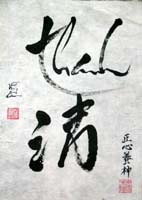 Thanh
清
正心養神